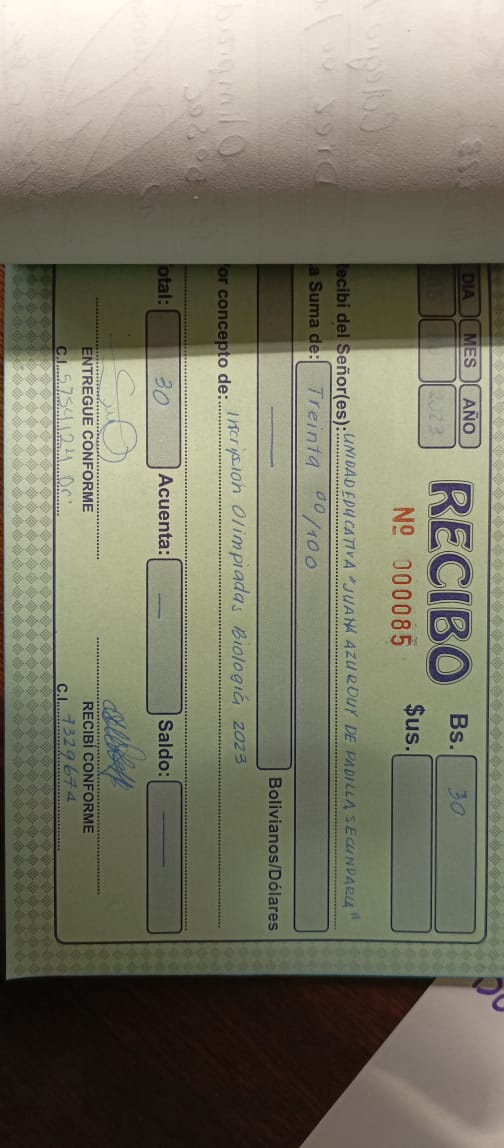 DIA MES AÑO
2023
RECIBO
Nº 000085
Bs. 30
$us.
ecibi del Señor(es): UNIDAD EDUCATIVA "JUANA AZURDUY DE PADILLA SECUNDARIA"
a Suma de: Treinta 00/100
Bolivianos/Dólares
or concepto de: Inscripcion Olimpiadas Biología 2023
otal: 30 Acuenta: — Saldo: —
ENTREGUE CONFORME
C.I. 5754124 Or.
RECIBÍ CONFORME
C.I. 7329674